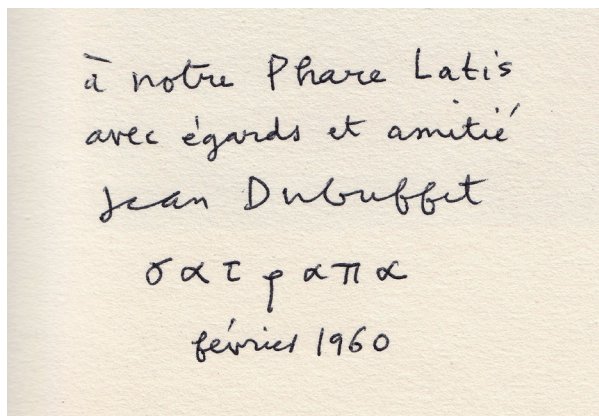 à notre Phare Latis
avec égards et amitié
Jean Dubuffet
σατραπα
février 1960